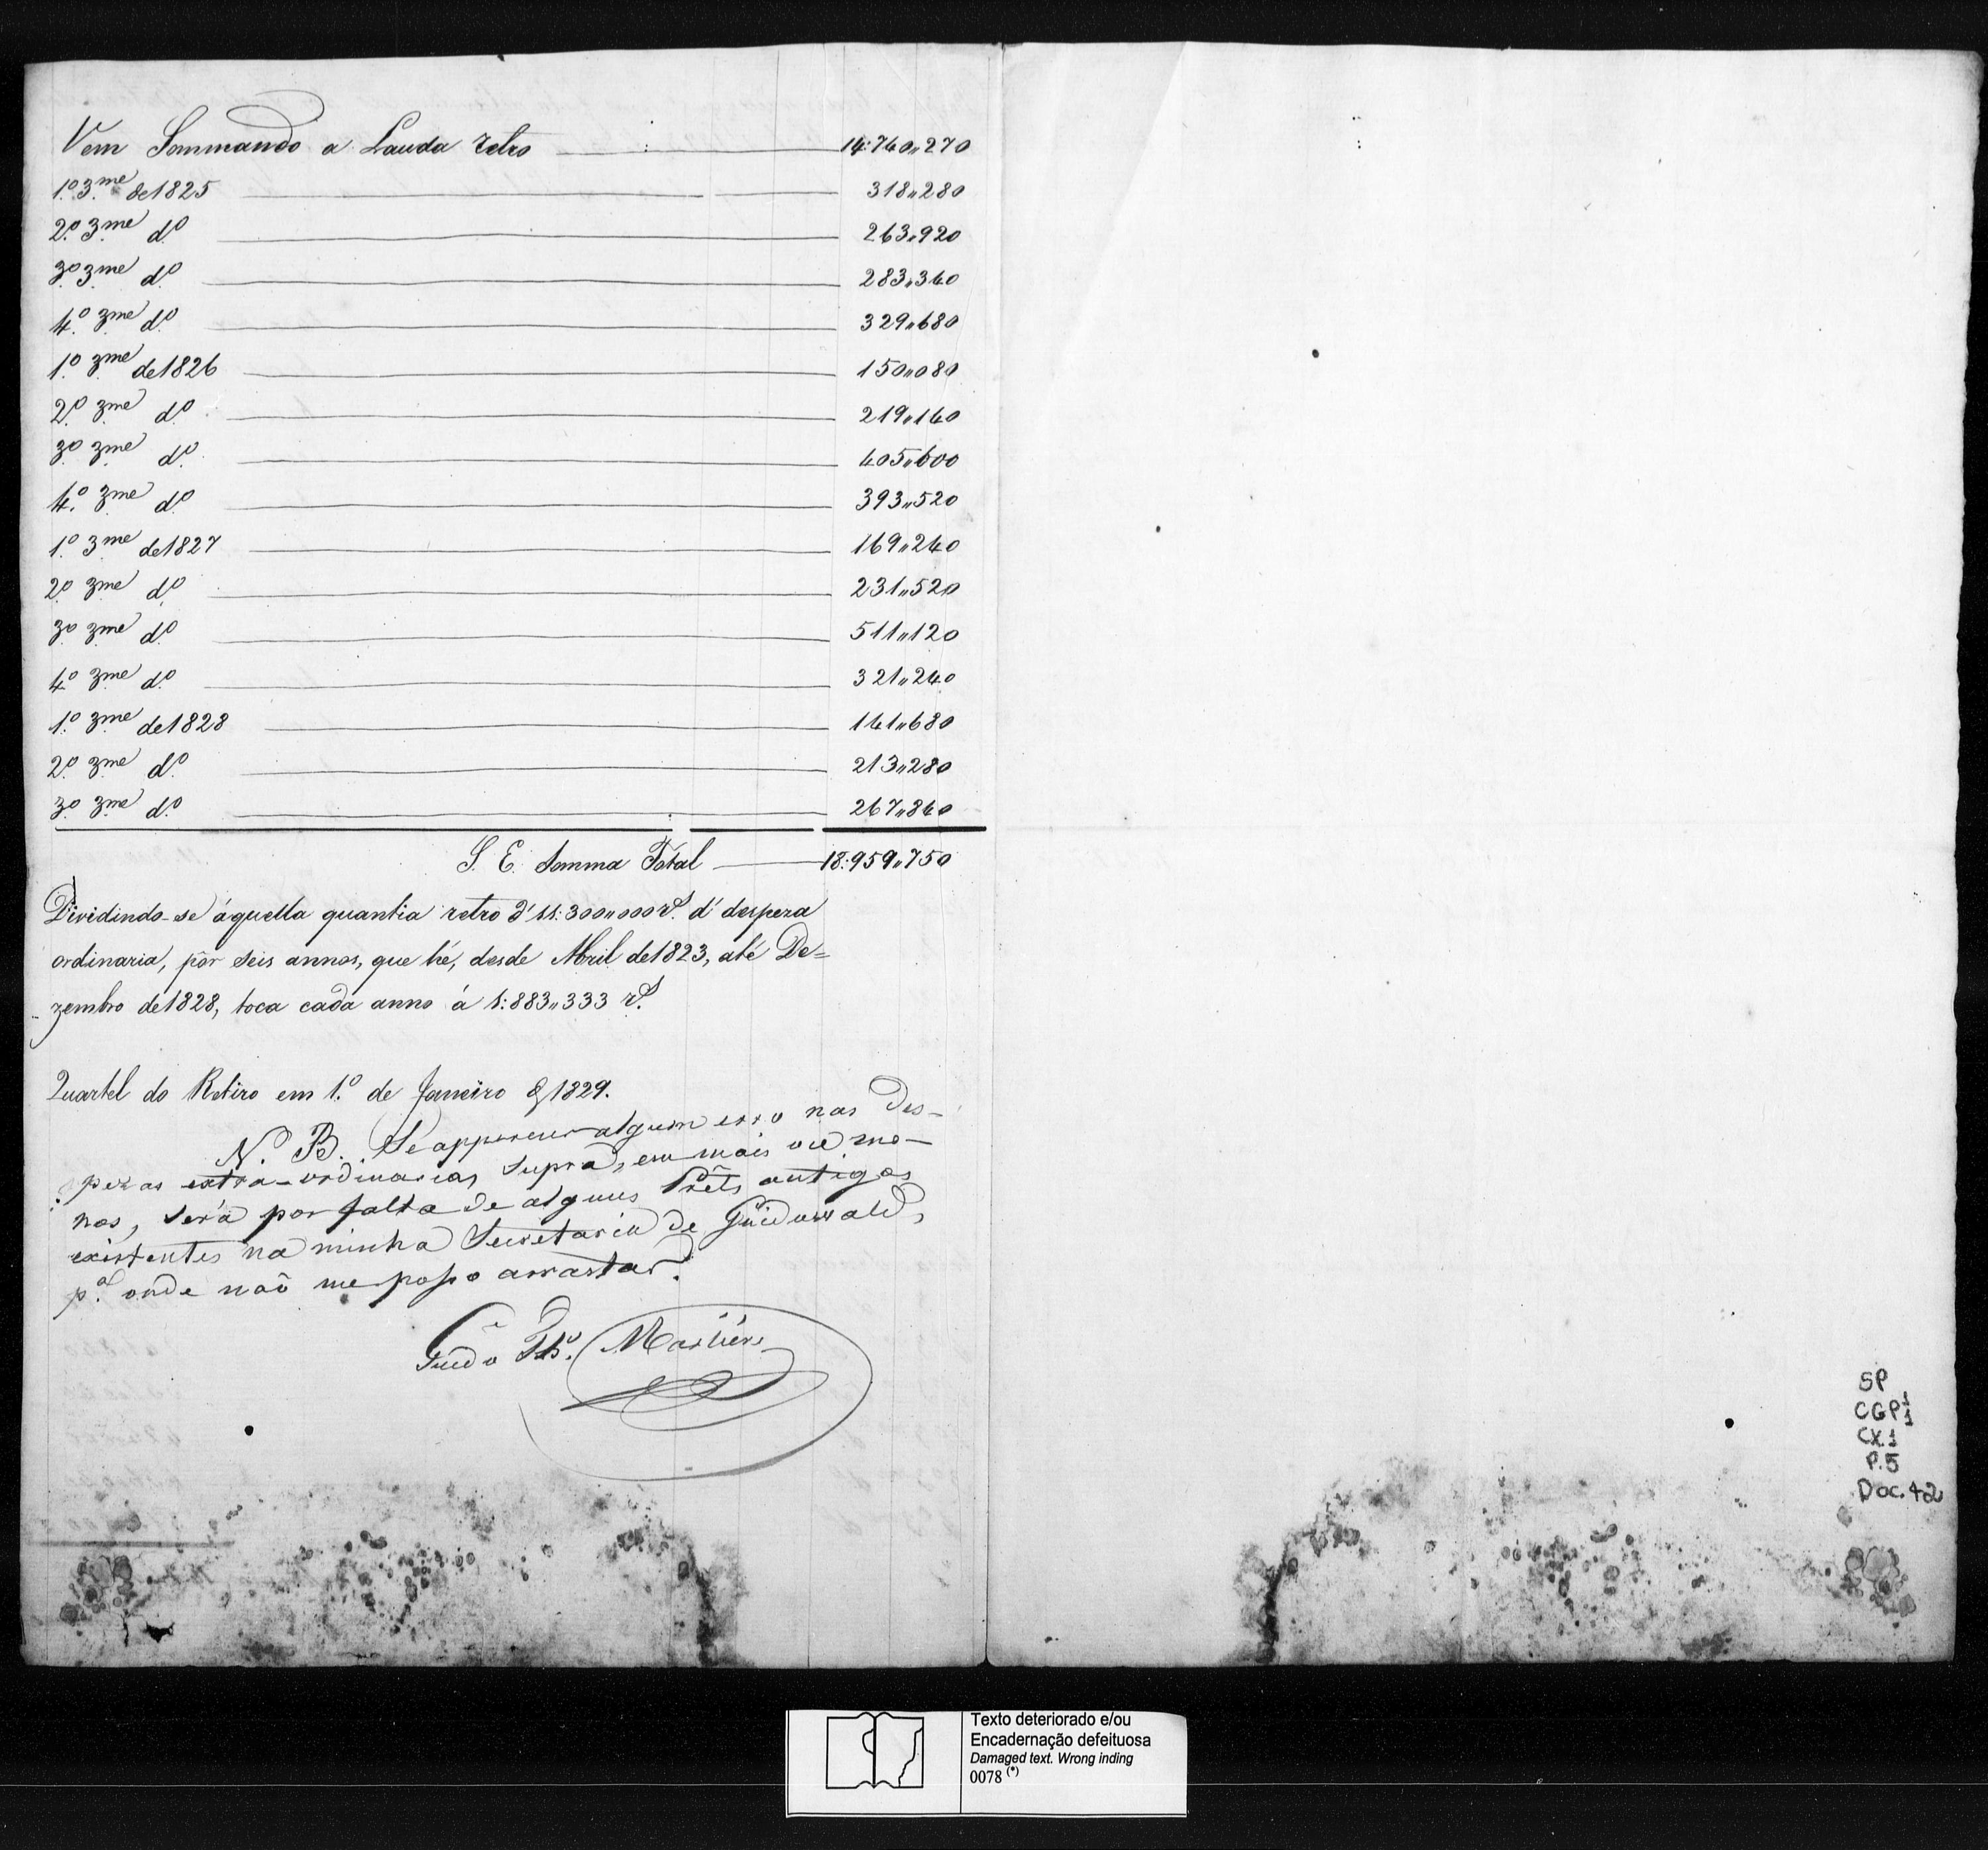 Vem Sommando a Lauda retro 14:740,,270
1.º 3.me de 1825 318,,280
2.º 3.me d.º 263,,920
3.º 3.me d.º 283,,340
4.º 3.me d.º 329,,680
1.º 3.me de 1826 150,,080
2.º 3.me d.º 219,,140
3.º 3.me d.º 405,,600
4.º 3.me d.º 393,,520
1.º 3.me de 1827 169,,240
2.º 3.me d.º 231,,520
3.º 3.me d.º 511,,120
4.º 3.me d.º 321,,240
1.º 3.me de 1828 141,,680
2.º 3.me d.º 213,,280
3.º 3.me d.º 267,,840
S. E. Somma Total 18:959,,750
Dividindo-se áquella quantia retro d' 11:300,,000 r.s d' despeza
ordinaria, pôr seis annos, que hé, desde Abril de 1823, até De=
zembro de 1828, toca cada anno á 1:883,,333 r.s
Quartel do Retiro em 1.º de Janeiro d' 1829.
N. B. Se apparecer algum erro nas des-
pezas extra-ordinarias supra, em mais ou me-
nos, será por falta de alguns Préts antigos
existentes na minha Secretaria de Guidowald,
p.a onde naõ me posso arrastar.
Guido Th.º Marlière
SP
CGP1
1
CX.1
P.5
Doc. 42
Texto deteriorado e/ou
Encadernação defeituosa
Damaged text. Wrong inding
0078 (*)